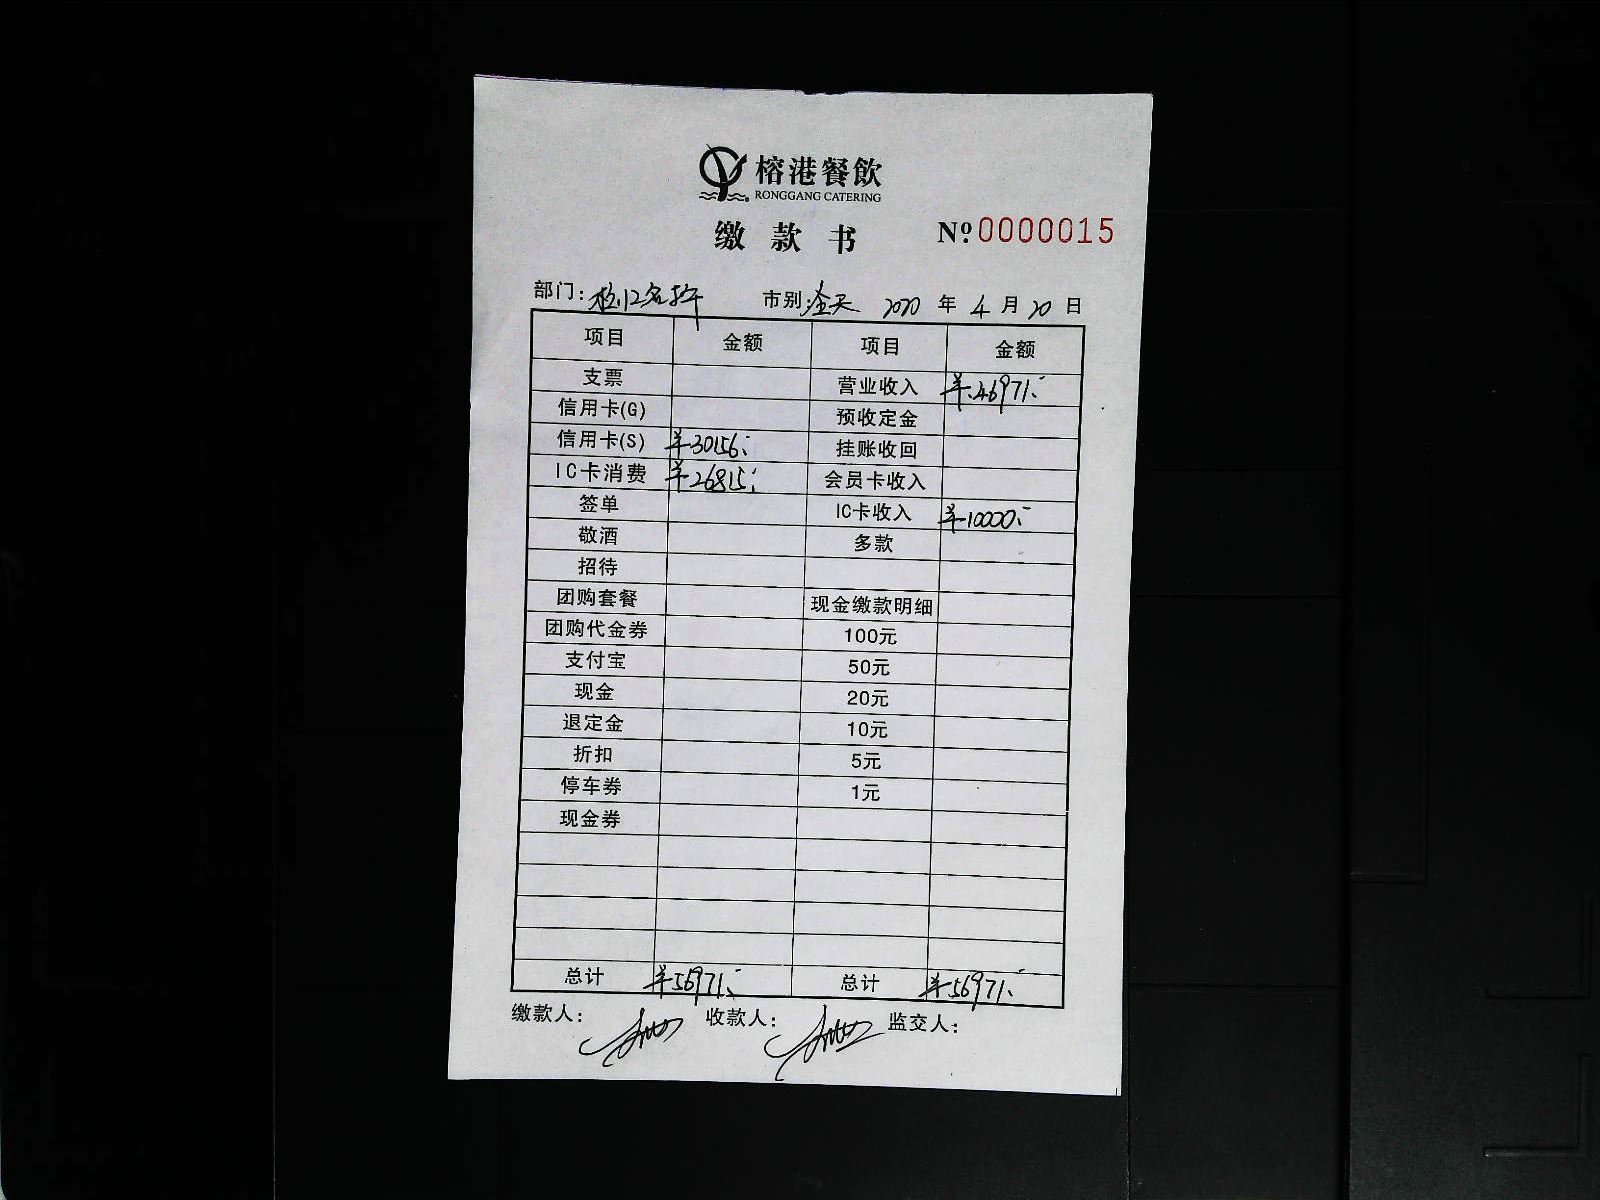 榕港餐飲
RONGGANG CATERING
缴款书 Nº.0000015
部门: 市别:全天 2020年4月20日
项目 金额 项目 金额
支票 营业收入 ¥46971.-
信用卡(G) 预收定金
信用卡(S) ¥30156.- 挂账收回
IC卡消费 ¥26815.- 会员卡收入
签单 IC卡收入 ¥10000.-
敬酒 多款
招待
团购套餐 现金缴款明细
团购代金券 100元
支付宝 50元
现金 20元
退定金 10元
折扣 5元
停车券 1元
现金券
总计 ¥56971.- 总计 ¥56971.-
缴款人: 收款人: 监交人: